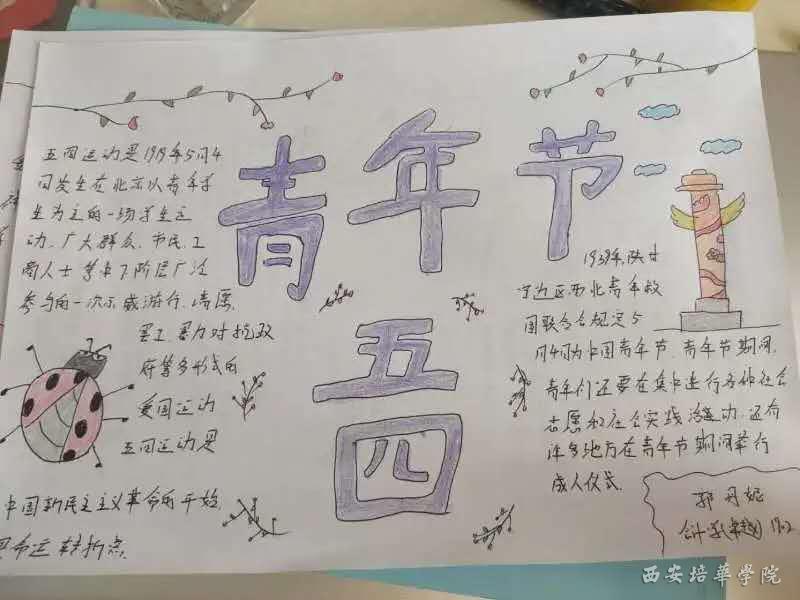 青年节
五四
五四运动是1919年5月4
日发生在北京以青年学
生为主的一场学生运
动,广大群众、市民、工
商人士等中下阶层广泛
参与的一次示威游行,请愿,
罢工,暴力对抗政
府等多形式的
爱国运动
五四运动是
中国新民主主义革命的开始,
命运转折点.
1939年,陕甘
宁边区西北青年救
国联合会规定5
月4日为中国青年节.青年节期间,
青年们还要在集中进行各种社会
志愿和社会实践活动.还有
许多地方在青年节期间举行
成人仪式.
郭丹妮
会计系(卓越)1702
西安培華学院